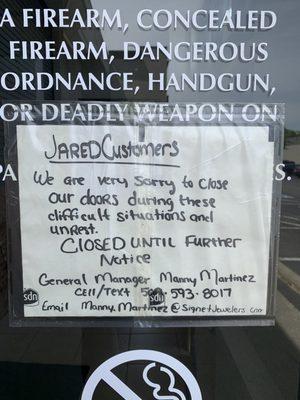 A FIREARM, CONCEALED
FIREARM, DANGEROUS
ORDNANCE, HANDGUN,
OR DEADLY WEAPON ON
S.
JARED Customers
We are very sorry to close
our doors during these
difficult situations and
unrest.
CLOSED UNTIL FURTHER
Notice
General Manager Manny Martinez
Cell/Text 593-8017
Email Manny.Martinez@SignetJewelers.com
sdn
sdn